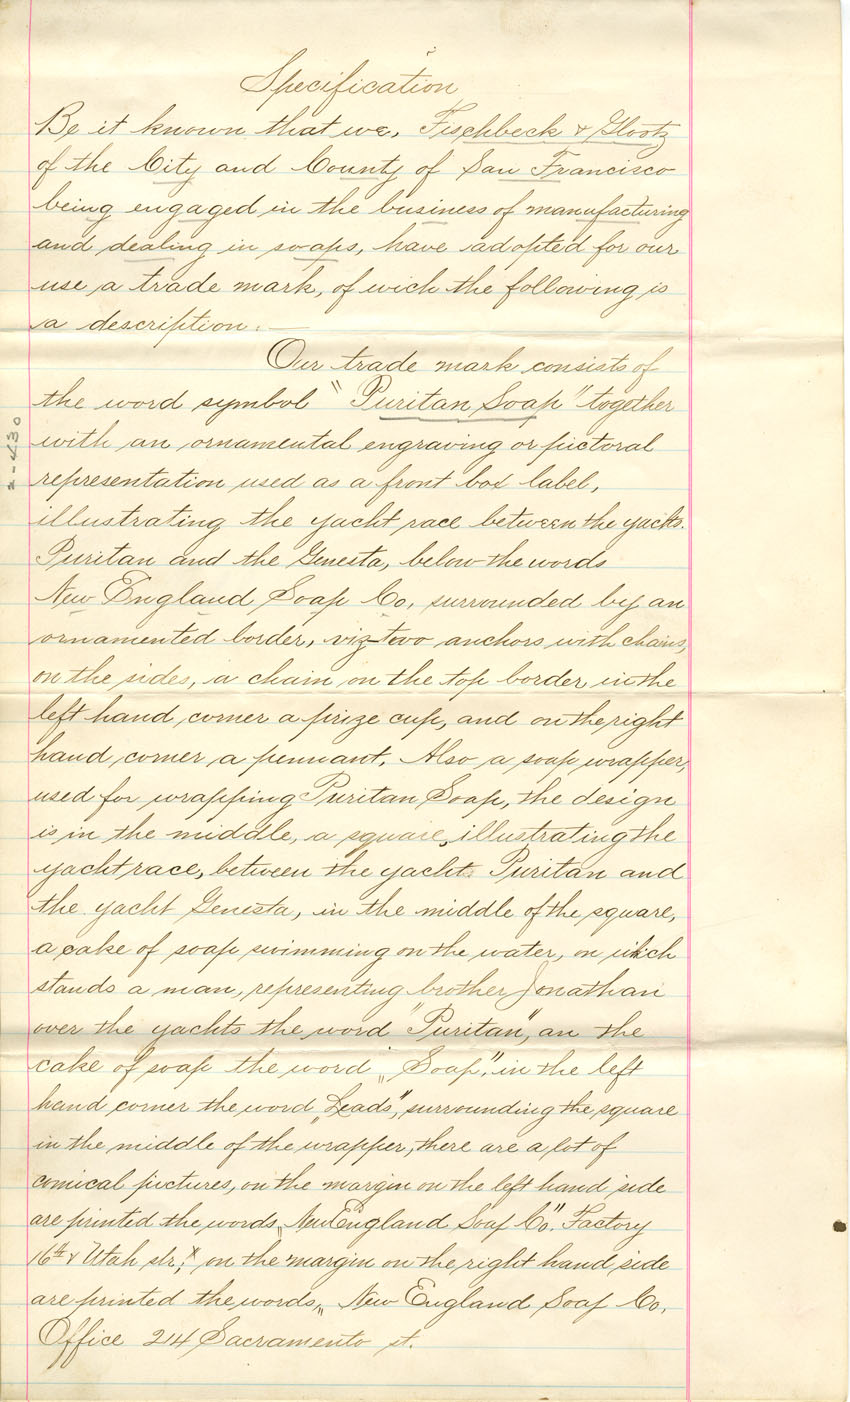 Specification
Be it known that we, Fischbeck & Glootz
of the City and County of San Francisco
being engaged in the business of manufacturing
and dealing in soaps, have adopted for our
use a trade mark, of wich the following is
a description. —
Our trade mark consists of
the word symbol "Puritan Soap" together
with an ornamental engraving or pictoral
representation used as a front box label,
illustrating the yacht race between the yachts.
Puritan and the Genesta, below the words
New England Soap Co, surrounded by an
ornamented border, viz two anchors with chains,
on the sides, a chain on the top border in the
left hand corner a prize cup, and on the right
hand corner a pennant. Also a soap wrapper,
used for wrapping Puritan Soap, the design
is in the middle, a square, illustrating the
yacht race, between the yacht Puritan and
the yacht Genesta, in the middle of the square,
a cake of soap swimming on the water, on which
stands a man, representing brother Jonathan
over the yachts the word "Puritan", an the
cake of soap the word „Soap", in the left
hand corner the word „Leads", surrounding the square
in the middle of the wrapper, there are a lot of
comical pictures, on the margin on the left hand side
are printed the words „New England Soap Co". Factory
16th & Utah str," on the margin on the right hand side
are printed the words „New England Soap Co.
Office 214 Sacramento st.
2-430